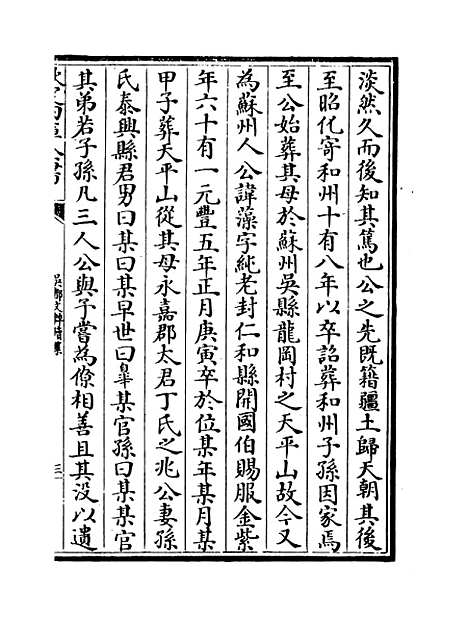 淡然久而後知其篤也公之先既籍疆土歸天朝其後
至昭化寄和州十有八年以卒詔葬和州子孫因家焉
至公始葬其母於蘇州吳縣龍岡村之天平山故今又
為蘇州人公諱藻字純老封仁和縣開國伯賜服金紫
年六十有一元豐五年正月庚寅卒於位某年某月某
甲子葬天平山從其母永嘉郡太君丁氏之兆公妻孫
氏泰興縣君男曰某曰某早世曰皋某官孫曰某某官
其弟若子孫凡三人公與予嘗為僚相善且其沒以遺
吳都文粹續集